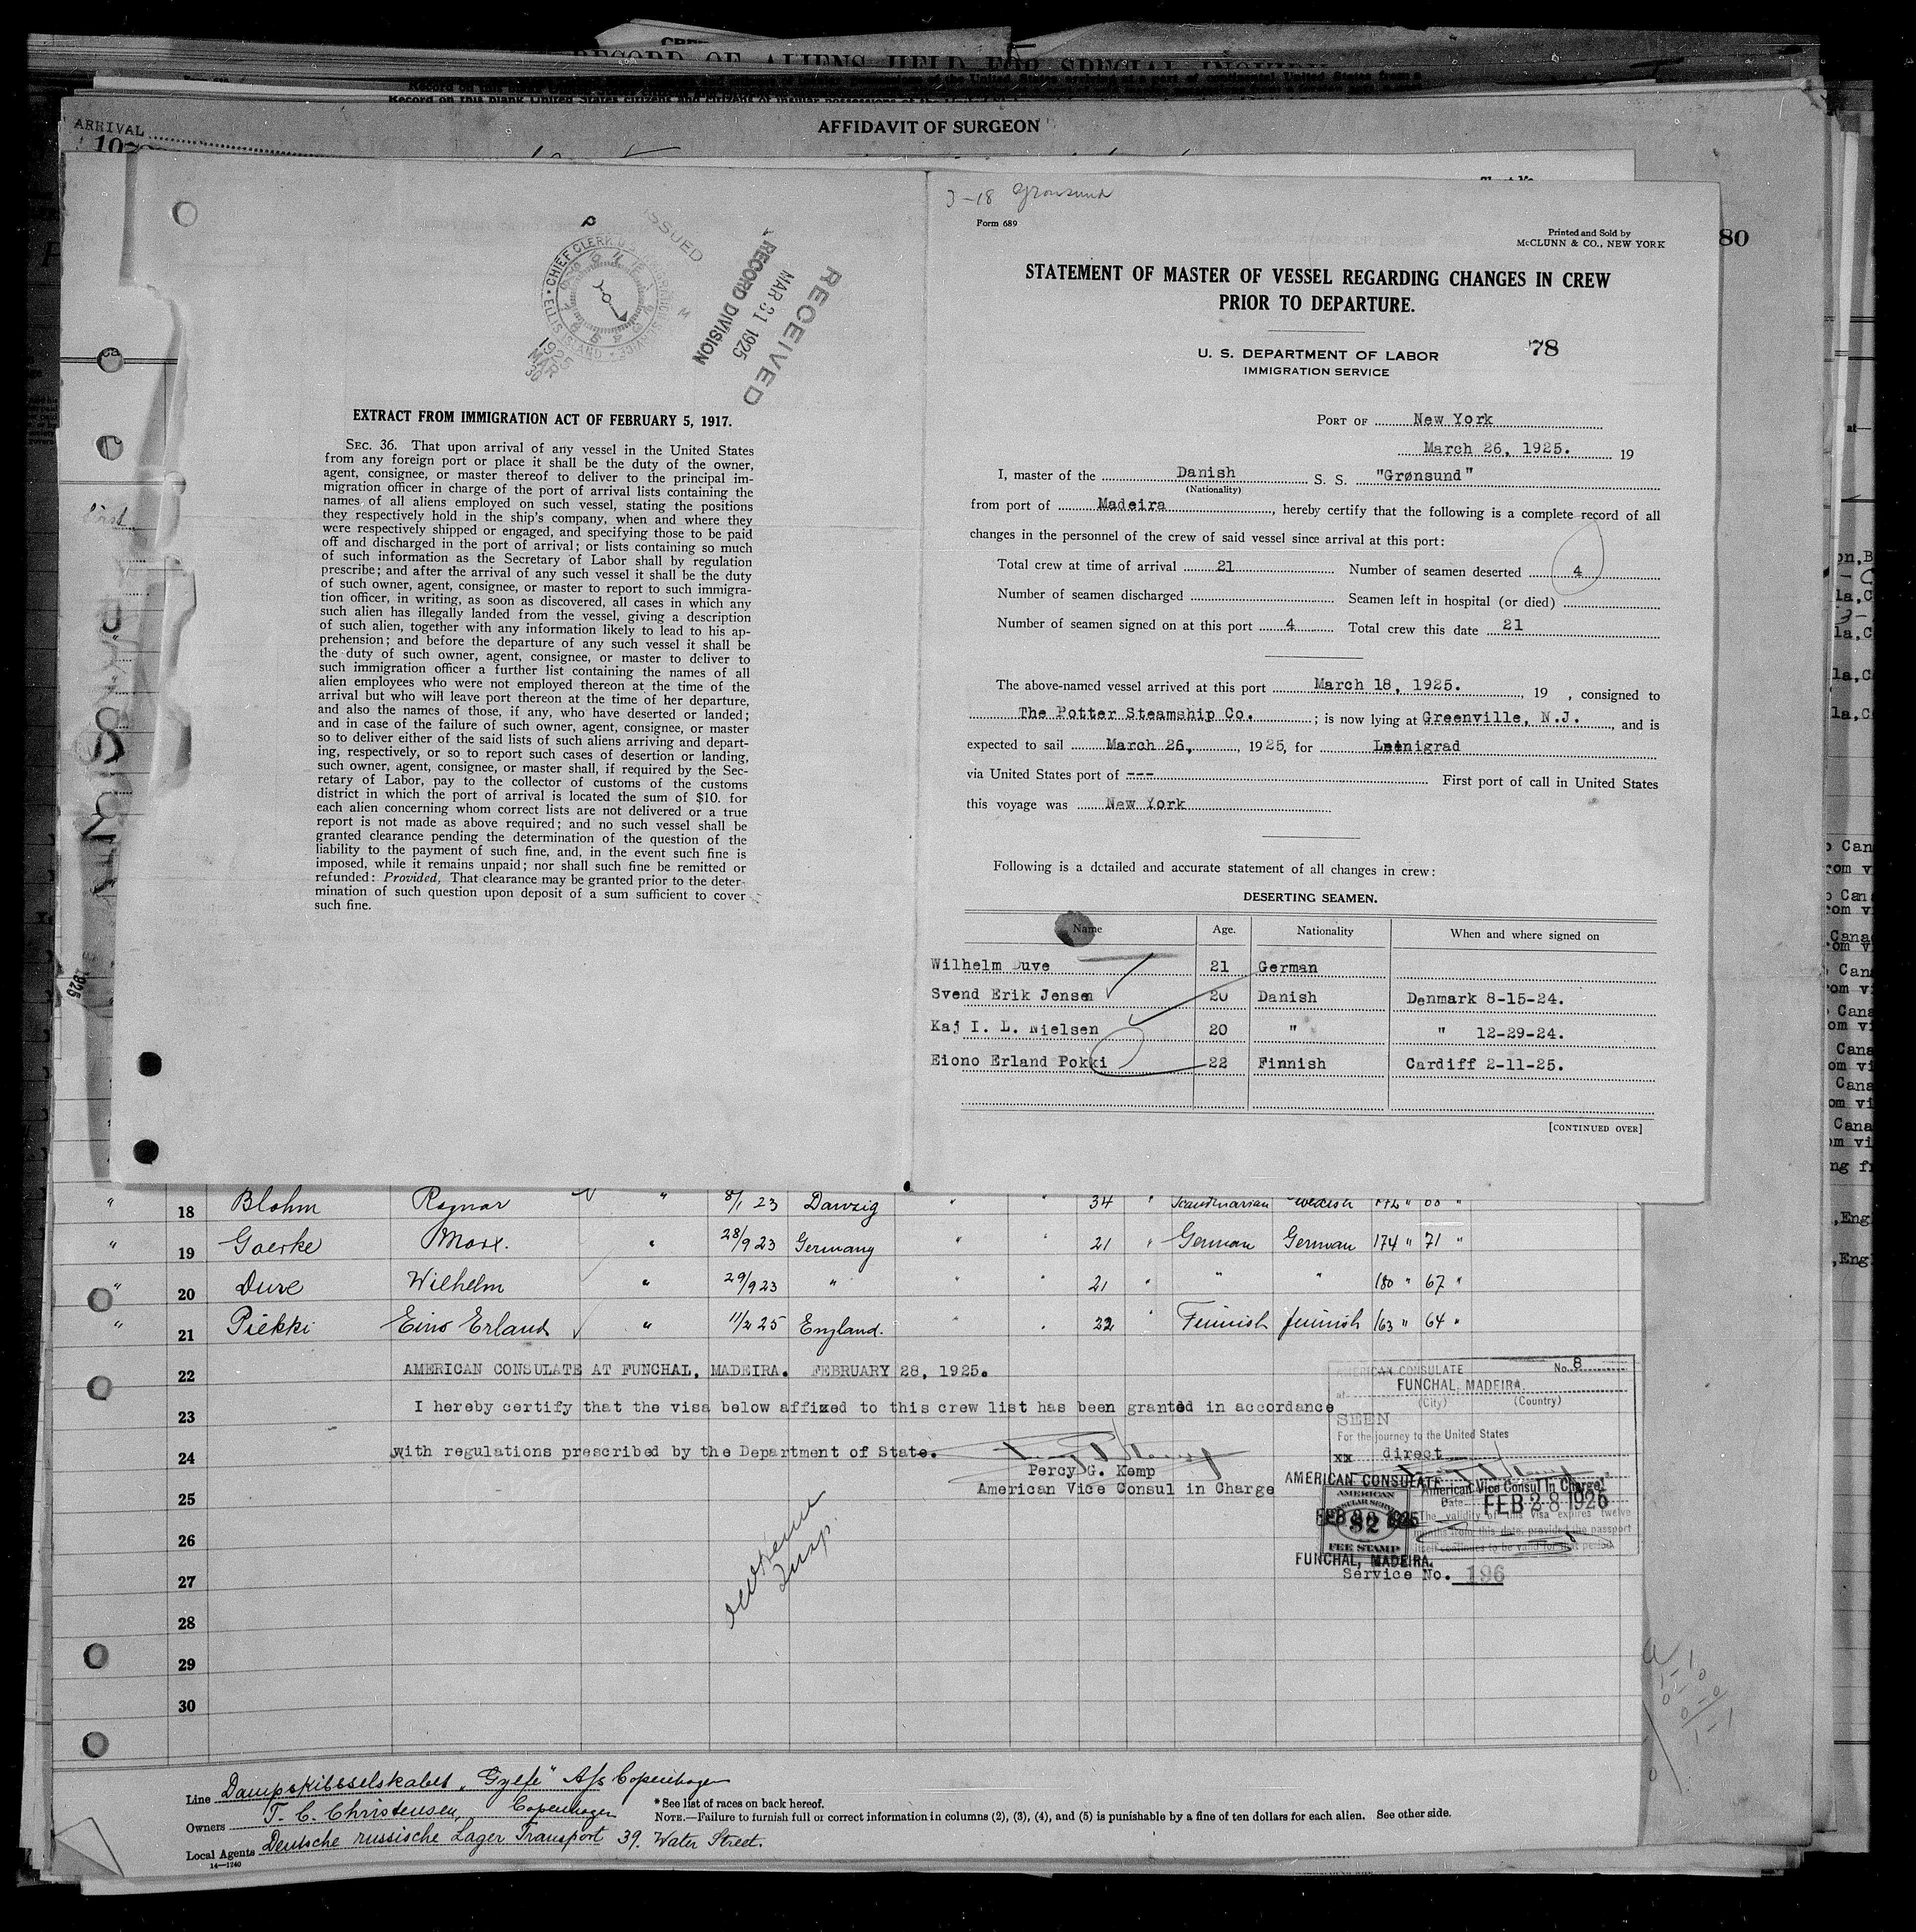 RECORD OF ALIENS HELD FOR SPECIAL INQUIRY
ARRIVAL
AFFIDAVIT OF SURGEON
80
ISSUED
CHIEF CLERK
MAR 30
1925
RECEIVED
MAR 31 1925
RECORD DIVISION
EXTRACT FROM IMMIGRATION ACT OF FEBRUARY 5, 1917.
SEC. 36. That upon arrival of any vessel in the United States
from any foreign port or place it shall be the duty of the owner,
agent, consignee, or master thereof to deliver to the principal im-
migration officer in charge of the port of arrival lists containing the
names of all aliens employed on such vessel, stating the positions
they respectively hold in the ship's company, when and where they
were respectively shipped or engaged, and specifying those to be paid
off and discharged in the port of arrival; or lists containing so much
of such information as the Secretary of Labor shall by regulation
prescribe; and after the arrival of any such vessel it shall be the duty
of such owner, agent, consignee, or master to report to such immigra-
tion officer, in writing, as soon as discovered, all cases in which any
such alien has illegally landed from the vessel, giving a description
of such alien, together with any information likely to lead to his ap-
prehension; and before the departure of any such vessel it shall be
the duty of such owner, agent, consignee, or master to deliver to
such immigration officer a further list containing the names of all
alien employees who were not employed thereon at the time of the
arrival but who will leave port thereon at the time of her departure,
and also the names of those, if any, who have deserted or landed;
and in case of the failure of such owner, agent, consignee, or master
so to deliver either of the said lists of such aliens arriving and depart-
ing, respectively, or so to report such cases of desertion or landing,
such owner, agent, consignee, or master shall, if required by the Sec-
retary of Labor, pay to the collector of customs of the customs
district in which the port of arrival is located the sum of $10. for
each alien concerning whom correct lists are not delivered or a true
report is not made as above required; and no such vessel shall be
granted clearance pending the determination of the question of the
liability to the payment of such fine, and, in the event such fine is
imposed, while it remains unpaid; nor shall such fine be remitted or
refunded: Provided, That clearance may be granted prior to the deter-
mination of such question upon deposit of a sum sufficient to cover
such fine.
3-18 Gronsund
Form 689
Printed and Sold by
McCLUNN & CO., NEW YORK
STATEMENT OF MASTER OF VESSEL REGARDING CHANGES IN CREW
PRIOR TO DEPARTURE.
U. S. DEPARTMENT OF LABOR
IMMIGRATION SERVICE
78
PORT OF New York
March 26, 1925. 19
I, master of the Danish S. S. "Grønsund"
(Nationality)
from port of Madeira, hereby certify that the following is a complete record of all
changes in the personnel of the crew of said vessel since arrival at this port:
Total crew at time of arrival 21 Number of seamen deserted 4
Number of seamen discharged Seamen left in hospital (or died)
Number of seamen signed on at this port 4 Total crew this date 21
The above-named vessel arrived at this port March 18, 1925., 19 , consigned to
The Potter Steamship Co. ; is now lying at Greenville, N.J., and is
expected to sail March 26, , 1925, for Lenigrad
via United States port of --- First port of call in United States
this voyage was New York
Following is a detailed and accurate statement of all changes in crew:
DESERTING SEAMEN.
Name Age. Nationality When and where signed on
Wilhelm Duve 21 German
Svend Erik Jensen 20 Danish Denmark 8-15-24.
Kaj I. L. Nielsen 20 " " 12-29-24.
Eiono Erland Pokki 22 Finnish Cardiff 2-11-25.
[CONTINUED OVER]
" 18 Blohm Ragnar " 8/1 23 Danzig " " 34 " Scandinavian Swedish 172 " 68 "
" 19 Goerke Max. " 28/9 23 Germany " " 21 " German German 174 " 71 "
" 20 Duve Wilhelm " 29/9 23 " " " 21 " " " 180 " 67 "
" 21 Piekki Eino Erland " 11/2 25 England. " " 22 " Finnish finnish 163 " 64 "
22 AMERICAN CONSULATE AT FUNCHAL, MADEIRA. FEBRUARY 28, 1925.
23 I hereby certify that the visa below affixed to this crew list has been granted in accordance
24 with regulations prescribed by the Department of State.
Percy G. Kemp
American Vice Consul in Charge
25
26
27
28
29
30
Insp.
AMERICAN CONSULATE No. 8
at FUNCHAL, MADEIRA.
(City) (Country)
SEEN
For the journey to the United States
xx direct
American Vice Consul In Charge
Date FEB 28 1925
The validity of this visa expires twelve
months from this date, provided the passport
itself continues to be valid for that period
AMERICAN CONSULATE
AMERICAN
CONSULAR SERVICE
$2
FEE STAMP
FEB 28 1925
FUNCHAL, MADEIRA.
Service No. 196
Line Dampskibsselskabet "Gylfe" A/s Copenhagen
Owners T. C. Christensen, Copenhagen
Local Agents Deutsche russische Lager Transport 39. Water Street.
14—1240
* See list of races on back hereof.
NOTE.—Failure to furnish full or correct information in columns (2), (3), (4), and (5) is punishable by a fine of ten dollars for each alien. See other side.